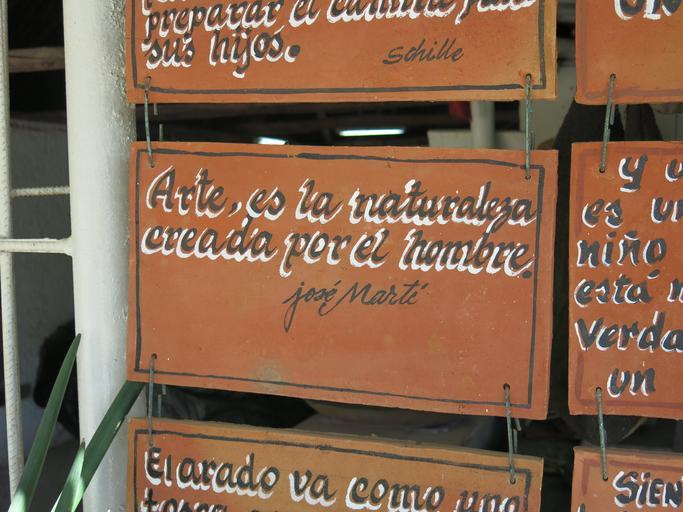 preparar el camino para
sus hijos.
Schille
Arte, es la naturaleza
creada por el hombre.
josé Martí
El arado va como una
Y
es un
niño
está
Verda
un
SIEN